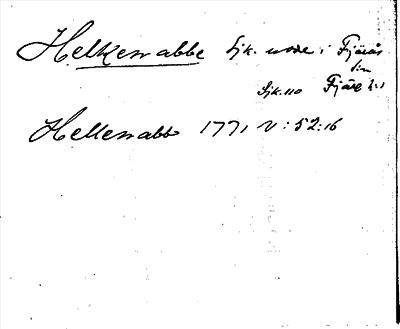 Helkenabbe Sjk. udde i Fjärås
sn
Sjk. 110 Fjäre h:d
Hellenabb 1771 V:52:16